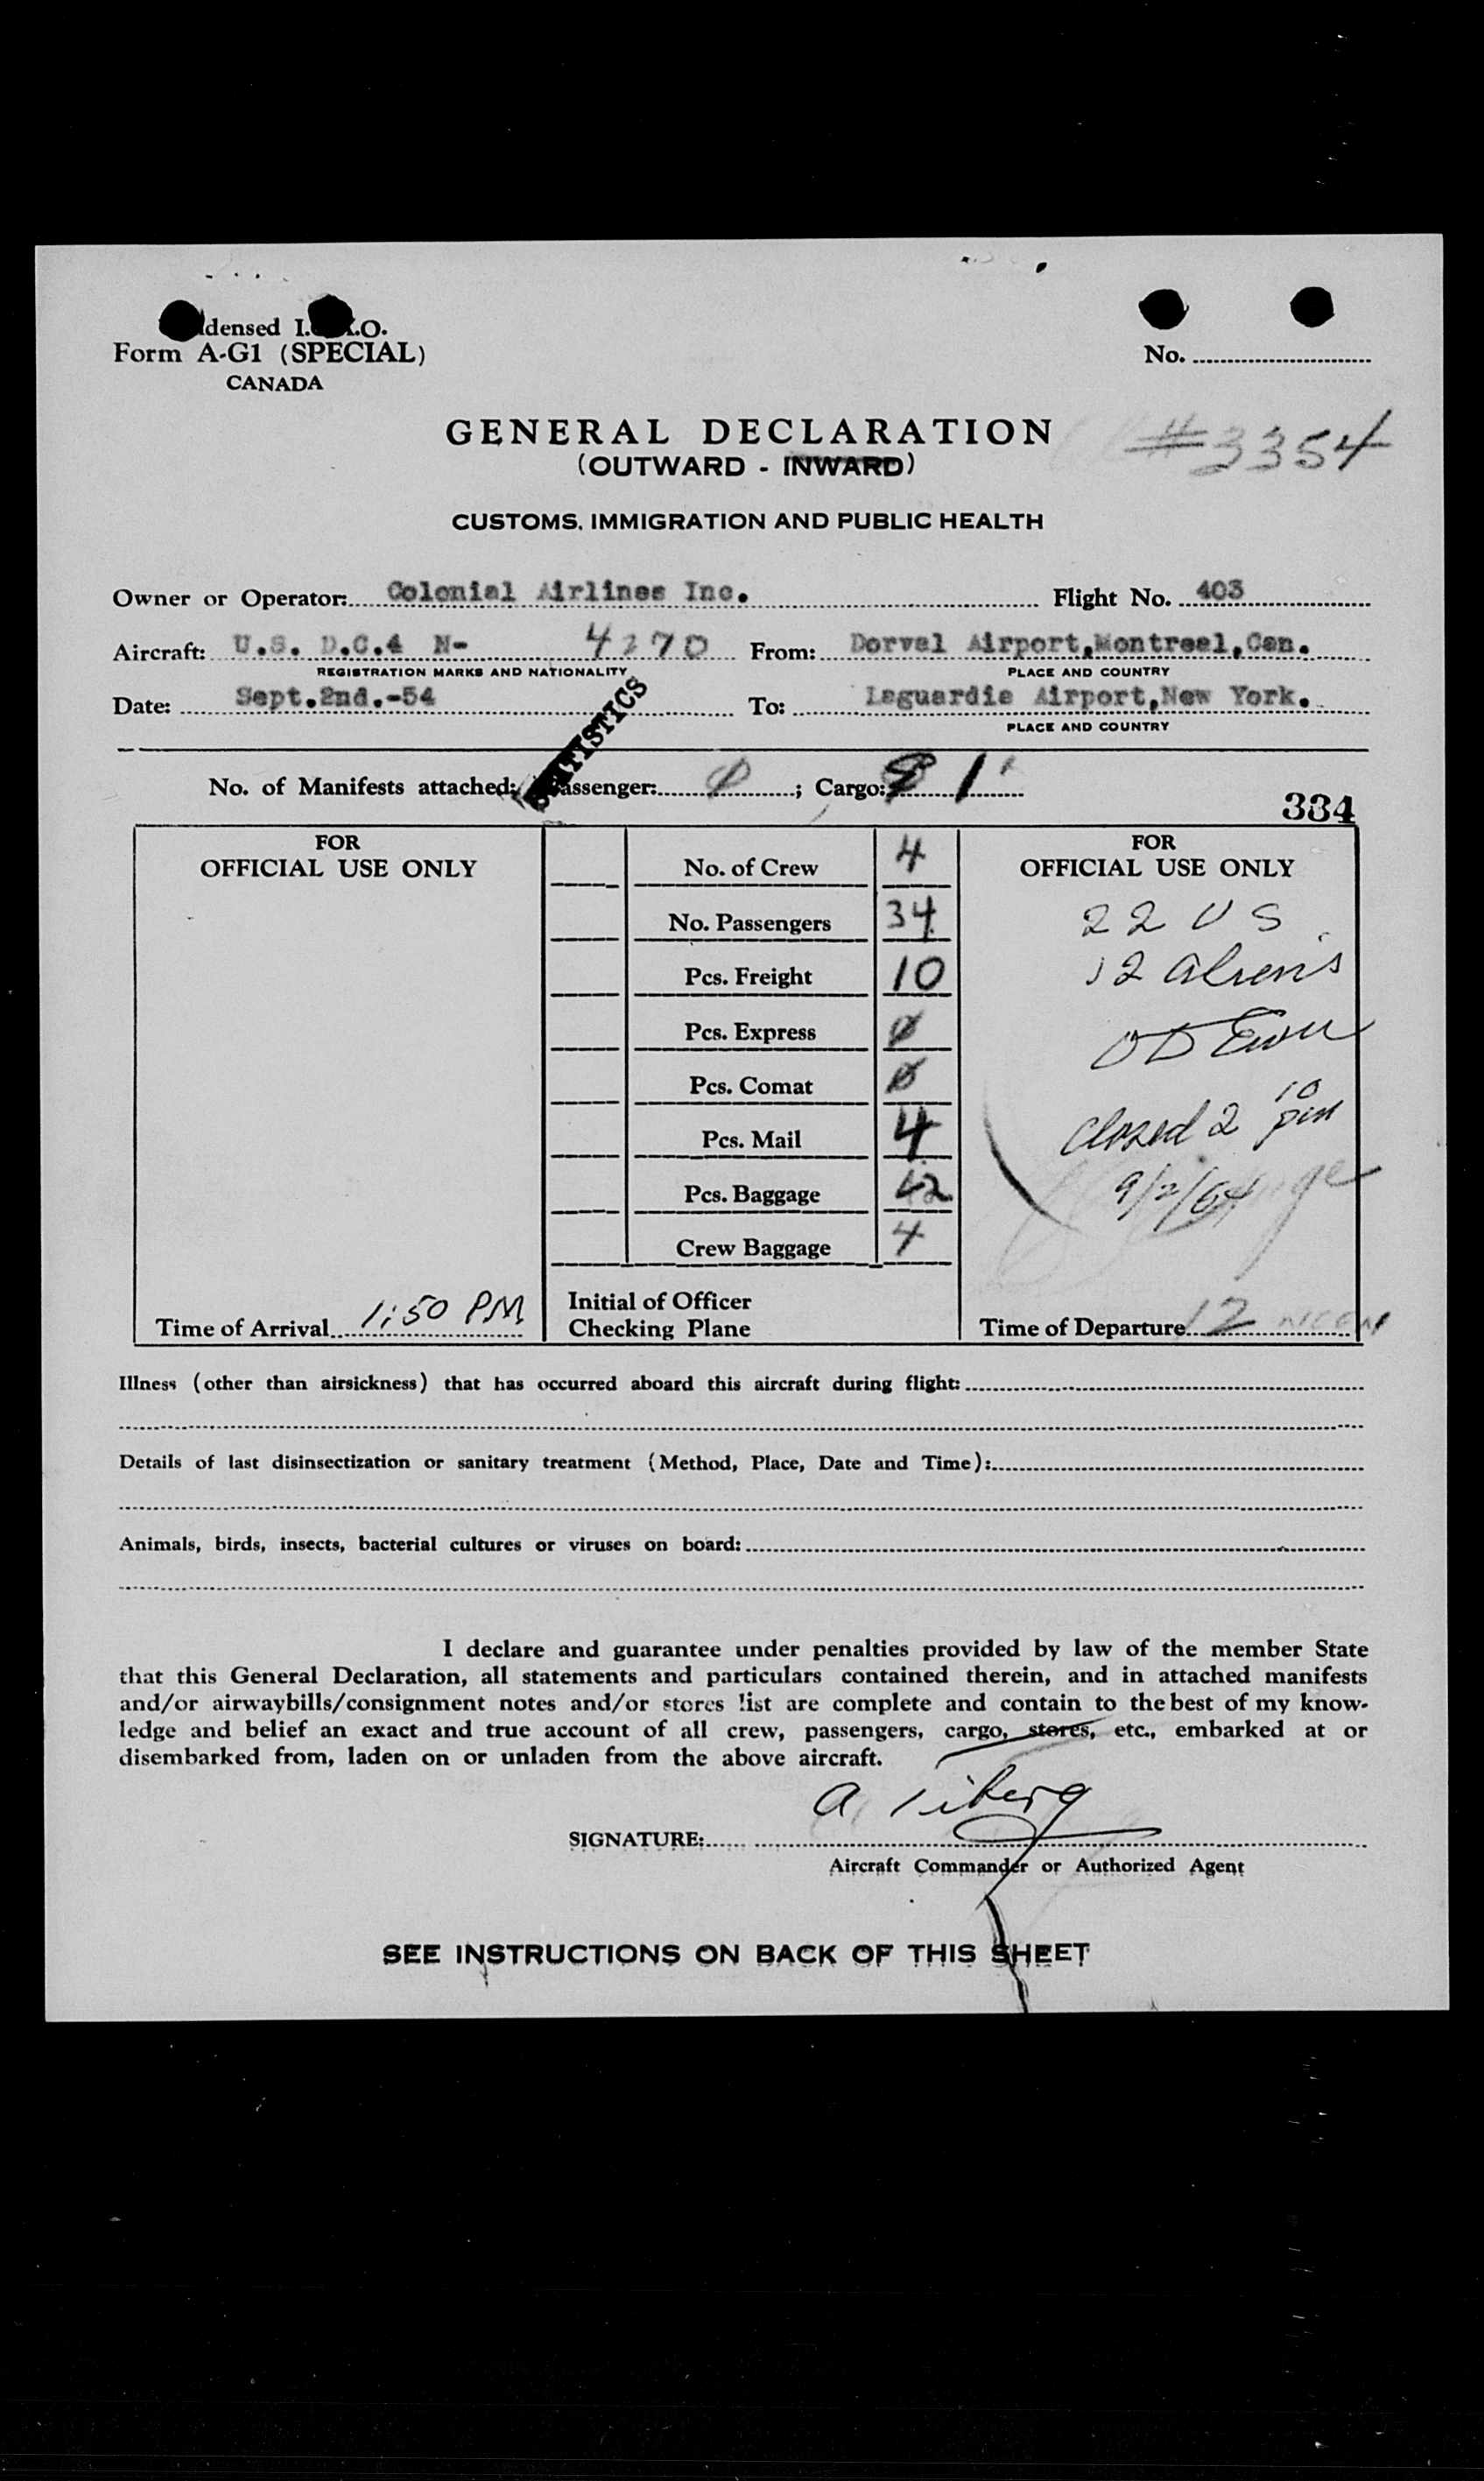 densed I. .O.
Form A-G1 (SPECIAL)
CANADA
No.
GENERAL DECLARATION
#3354
(OUTWARD - INWARD)
CUSTOMS, IMMIGRATION AND PUBLIC HEALTH
Owner or Operator: Colonial Airlines Inc. Flight No. 403
Aircraft: U.S. D.C.4 N- 4270 From: Dorval Airport,Montreal,Can.
REGISTRATION MARKS AND NATIONALITY PLACE AND COUNTRY
Date: Sept.2nd.-54 To: Laguardia Airport,New York.
PLACE AND COUNTRY
STATISTICS
No. of Manifests attached: Passenger: 0; Cargo: 1
334
FOR
OFFICIAL USE ONLY
No. of Crew 4
No. Passengers 34
Pcs. Freight 10
Pcs. Express 0
Pcs. Comat 0
Pcs. Mail 4
Pcs. Baggage 42
Crew Baggage 4
FOR
OFFICIAL USE ONLY
22 US
12 aliens
Closed 2 10 pm
9/2/54
Time of Arrival 1:50 PM
Initial of Officer
Checking Plane
Time of Departure 12
Illness (other than airsickness) that has occurred aboard this aircraft during flight:
Details of last disinsectization or sanitary treatment (Method, Place, Date and Time):
Animals, birds, insects, bacterial cultures or viruses on board:
I declare and guarantee under penalties provided by law of the member State
that this General Declaration, all statements and particulars contained therein, and in attached manifests
and/or airwaybills/consignment notes and/or stores list are complete and contain to the best of my know-
ledge and belief an exact and true account of all crew, passengers, cargo, stores, etc., embarked at or
disembarked from, laden on or unladen from the above aircraft.
SIGNATURE: A
Aircraft Commander or Authorized Agent
SEE INSTRUCTIONS ON BACK OF THIS SHEET